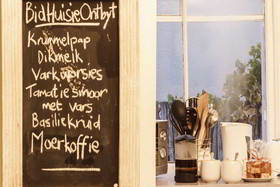 BidHuisie Ontbyt
Krummelpap
Dikmelk
Varkworsies
Tamatie smoor
met vars
Basiliekruid
Moerkoffie